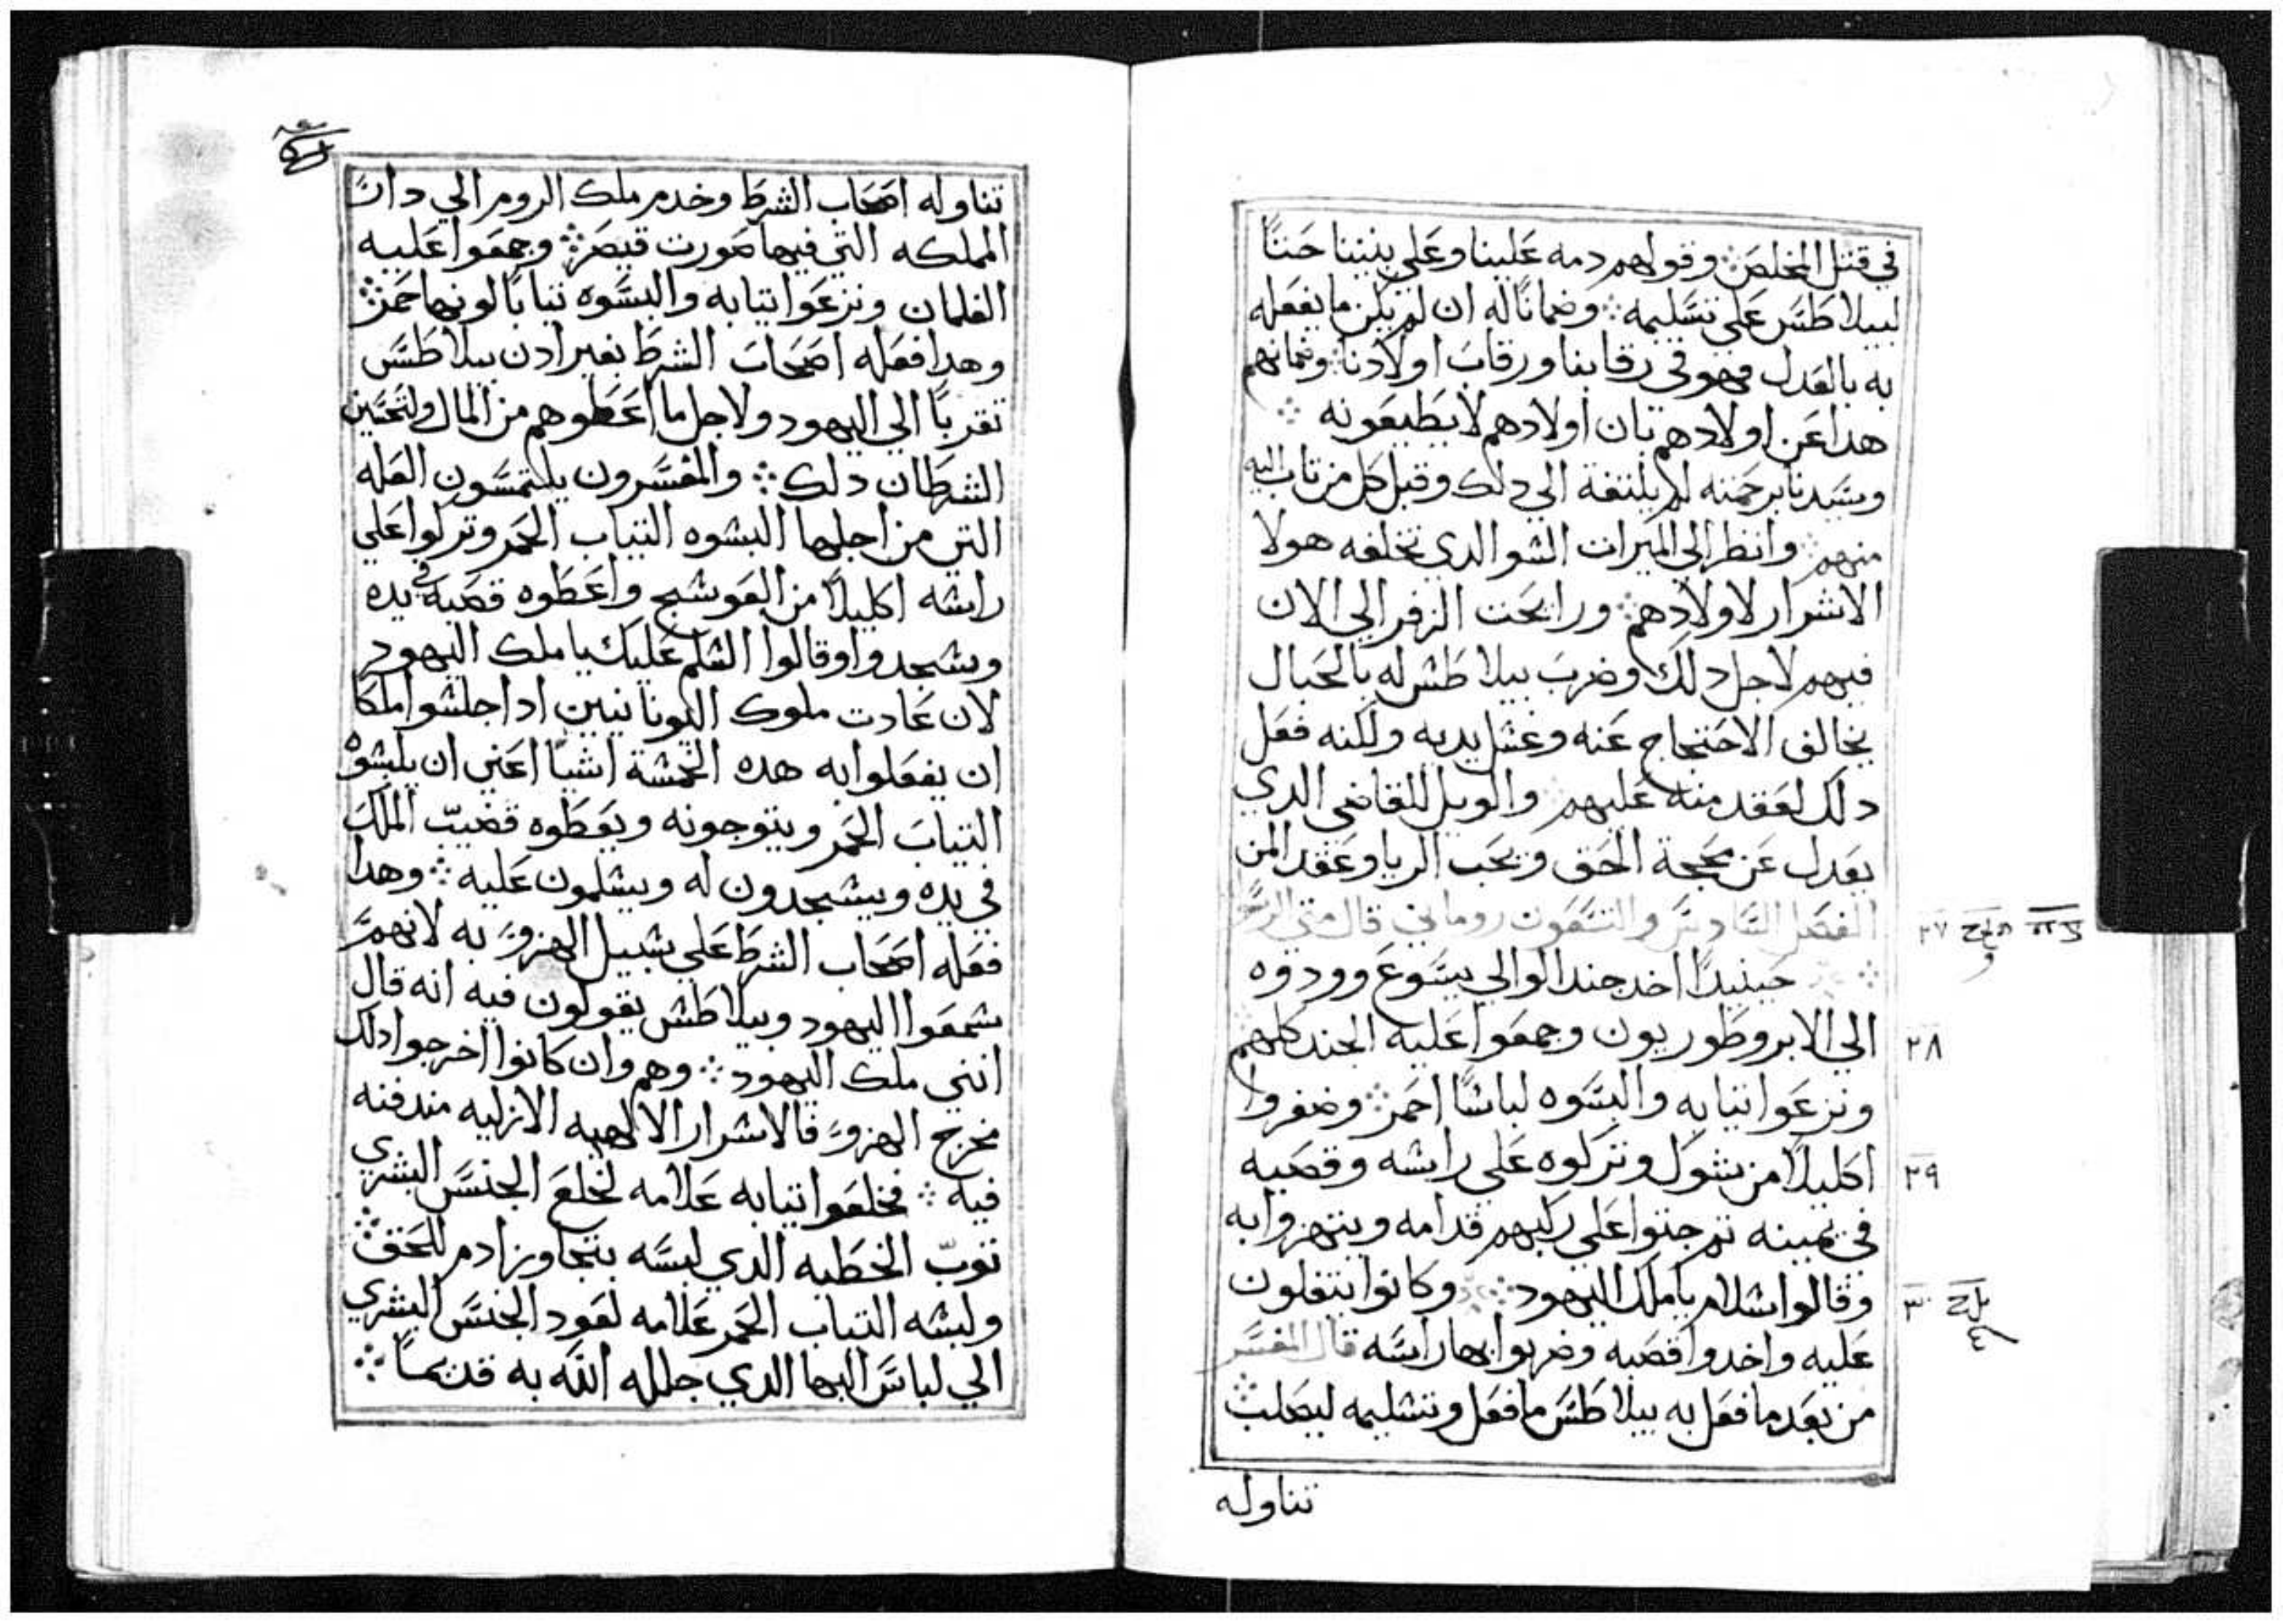 في قتل المخلص ⁘ وقولهم دمه علينا وعلي بنينا حتنًا
لبيلاطس علي تسليمه ⁘ وضمانًا له ان لم يكن ما يفعله
به بالعدل فهو في رقابنا ورقاب اولادنا ⁘ وضمانهم
هدا عن اولادهم بان اولادهم لا يطيعونه ⁘
وسيدنا برحمته لم يلتفة الي دلك وقبل كل من تاب اليه
منهم ⁘ وانظر الي الميرات الشو الدي تخلفه هولا
الاشرار لاولادهم ⁘ ورايحت الزفر الي الان
فيهم لاجل دلك وضرب بيلاطش له بالحبال
يخالف الاحتجاج عنه وغشل يديه ولكنه فعل
دلك لعقد منه عليهم ⁘ والويل للقاضي الدي
يعدل عن محجة الحق ويحب الريا وعقد المن
الفصل السادس والتسعون روماني قال متي الرسول
٢٧
⁘ حينيدًا اخد جند الوالي يسوع وودوه
الي الابروطوريون وجمعوا عليه الجند كلهم
٢٨
ونزعوا تيابه والبسوه لباسًا احمر ⁘ وضفروا
اكليلًا من شوك وتركوه علي راسه وقصبه
٢٩
في يمينه تم جتوا علي ركبهم قدامه ويتهزوا به
وقالوا سلام يا ملك اليهود ⁘ وكانوا يتفلون
٣٠
عليه واخدوا قصبه وضربوا بها راسه قال المفسر
من بعد ما فعل به بيلاطس ما فعل وتشليمه ليصلب ⁘
تناوله
تناوله اصحاب الشرط وخدم ملك الروم الي دار
المملكه التي فيها صورت قيصر ⁘ وجمعوا عليه
الغلمان ونزعوا تيابه والبسوه تيابًا لونها حمر ⁘
وهدا فعله اصحاب الشرط بغير ادن بيلاطس
تقربًا الي اليهود ولاجل ما اعطوهم من المال ولتحسين
الشرطان دلك ⁘ والمفسرون يلتمسون العله
التي من اجلها البشوه التياب الحمر وتركوا علي
راشه اكليلًا من العوشج واعطوه قصبه في يده
وشجدوا وقالوا الشلم عليك يا ملك اليهود
لان عادت ملوك اليونانيين ادا جلشوا ملكا
ان يفعلوا به هده الخمشة اشيا اعني ان يلبشوه
التياب الحمر ويتوجونه ويعطوه قضيب الملك
في يده ويشجدون له ويشلمون عليه ⁘ وهدا
فعله اصحاب الشرط علي شبيل الهزو به لانهم
شمعوا اليهود وبيلاطش يقولون فيه انه قال
انني ملك اليهود ⁘ وهم وان كانوا اخرجوا دلك
مخرج الهزو فالاشرار الالهيه الازليه مندفنه
فيه ⁘ فخلعوا تيابه علامه لخلع الجنس البشري
توب الخطيه الدي لبسه بتجاوز ادم للحق ⁘
ولبشه التياب الحمر علامه لعود الجنس البشري
الي لباس البها الدي جلله الله به قديمًا ⁘